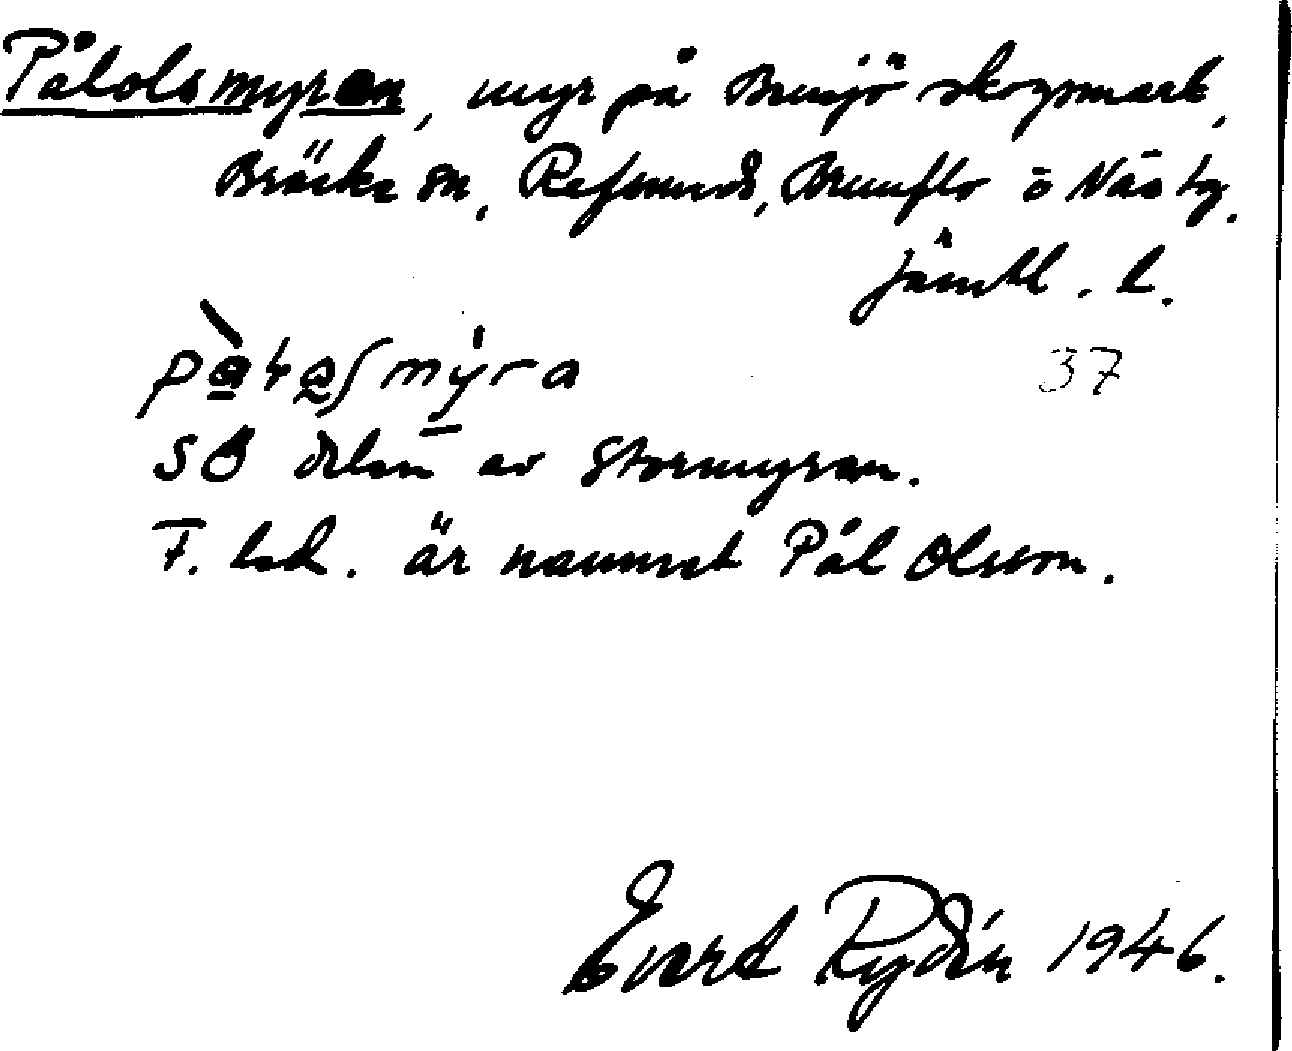 Pålolsmyren, myr på Bensjö skogsmark,
Bräcke sn, Refsunds, Brunflo o Näs tg.
Jämtl. l.
37
SÖ delen av Stormyran.
F. led. är namnet Pål Olsson.
Evert Rydén 1946.